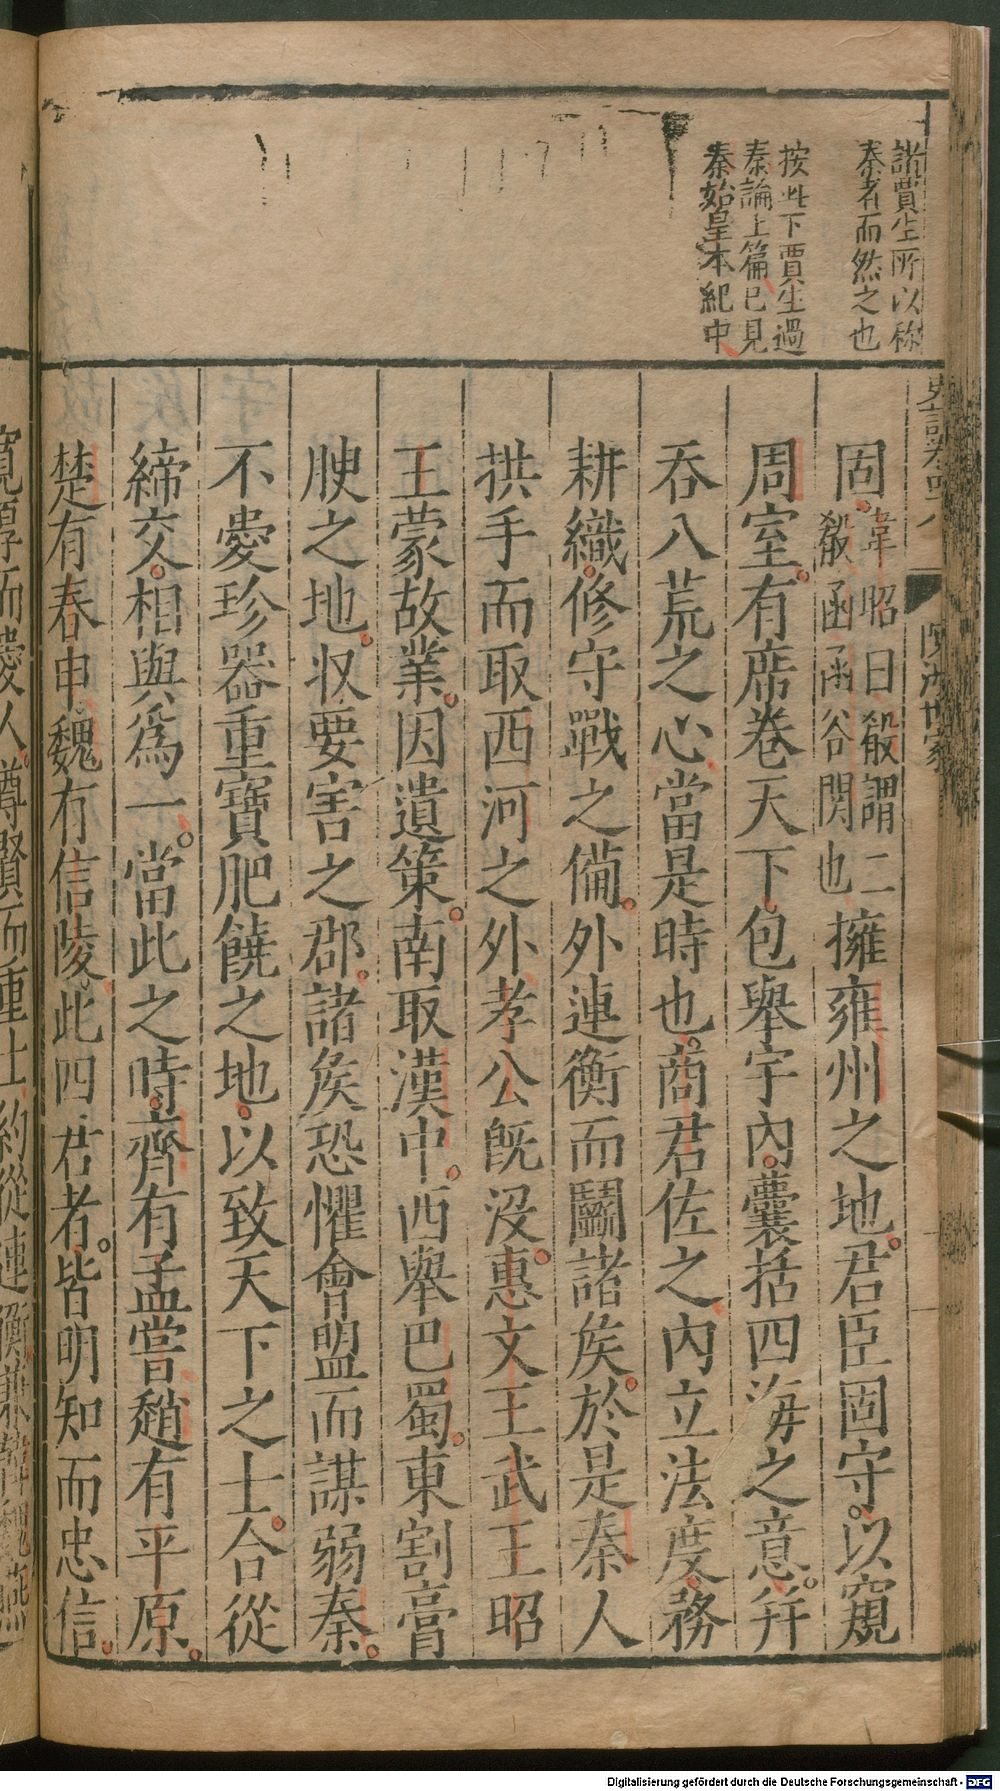 諸賈生所以稱
秦者而然之也
按此下賈生過
秦論上篇已見
秦始皇本紀中
史記卷四八
陳涉世家
固韋昭曰殽謂二
殽函函谷關也擁雍州之地君臣固守以窺
周室有席卷天下包舉宇內囊括四海之意并
吞八荒之心當是時也商君佐之內立法度務
耕織修守戰之備外連衡而鬬諸矦於是秦人
拱手而取西河之外孝公旣沒惠文王武王昭
王蒙故業因遺策南取漢中西舉巴蜀東割膏
腴之地收要害之郡諸矦恐懼會盟而謀弱秦
不愛珍器重寶肥饒之地以致天下之士合從
締交相與爲一當此之時齊有孟嘗趙有平原
楚有春申魏有信陵此四君者皆明知而忠信
寬厚而愛人尊賢而重士約從連衡兼韓魏燕
Digitalisierung gefördert durch die Deutsche Forschungsgemeinschaft - DFG